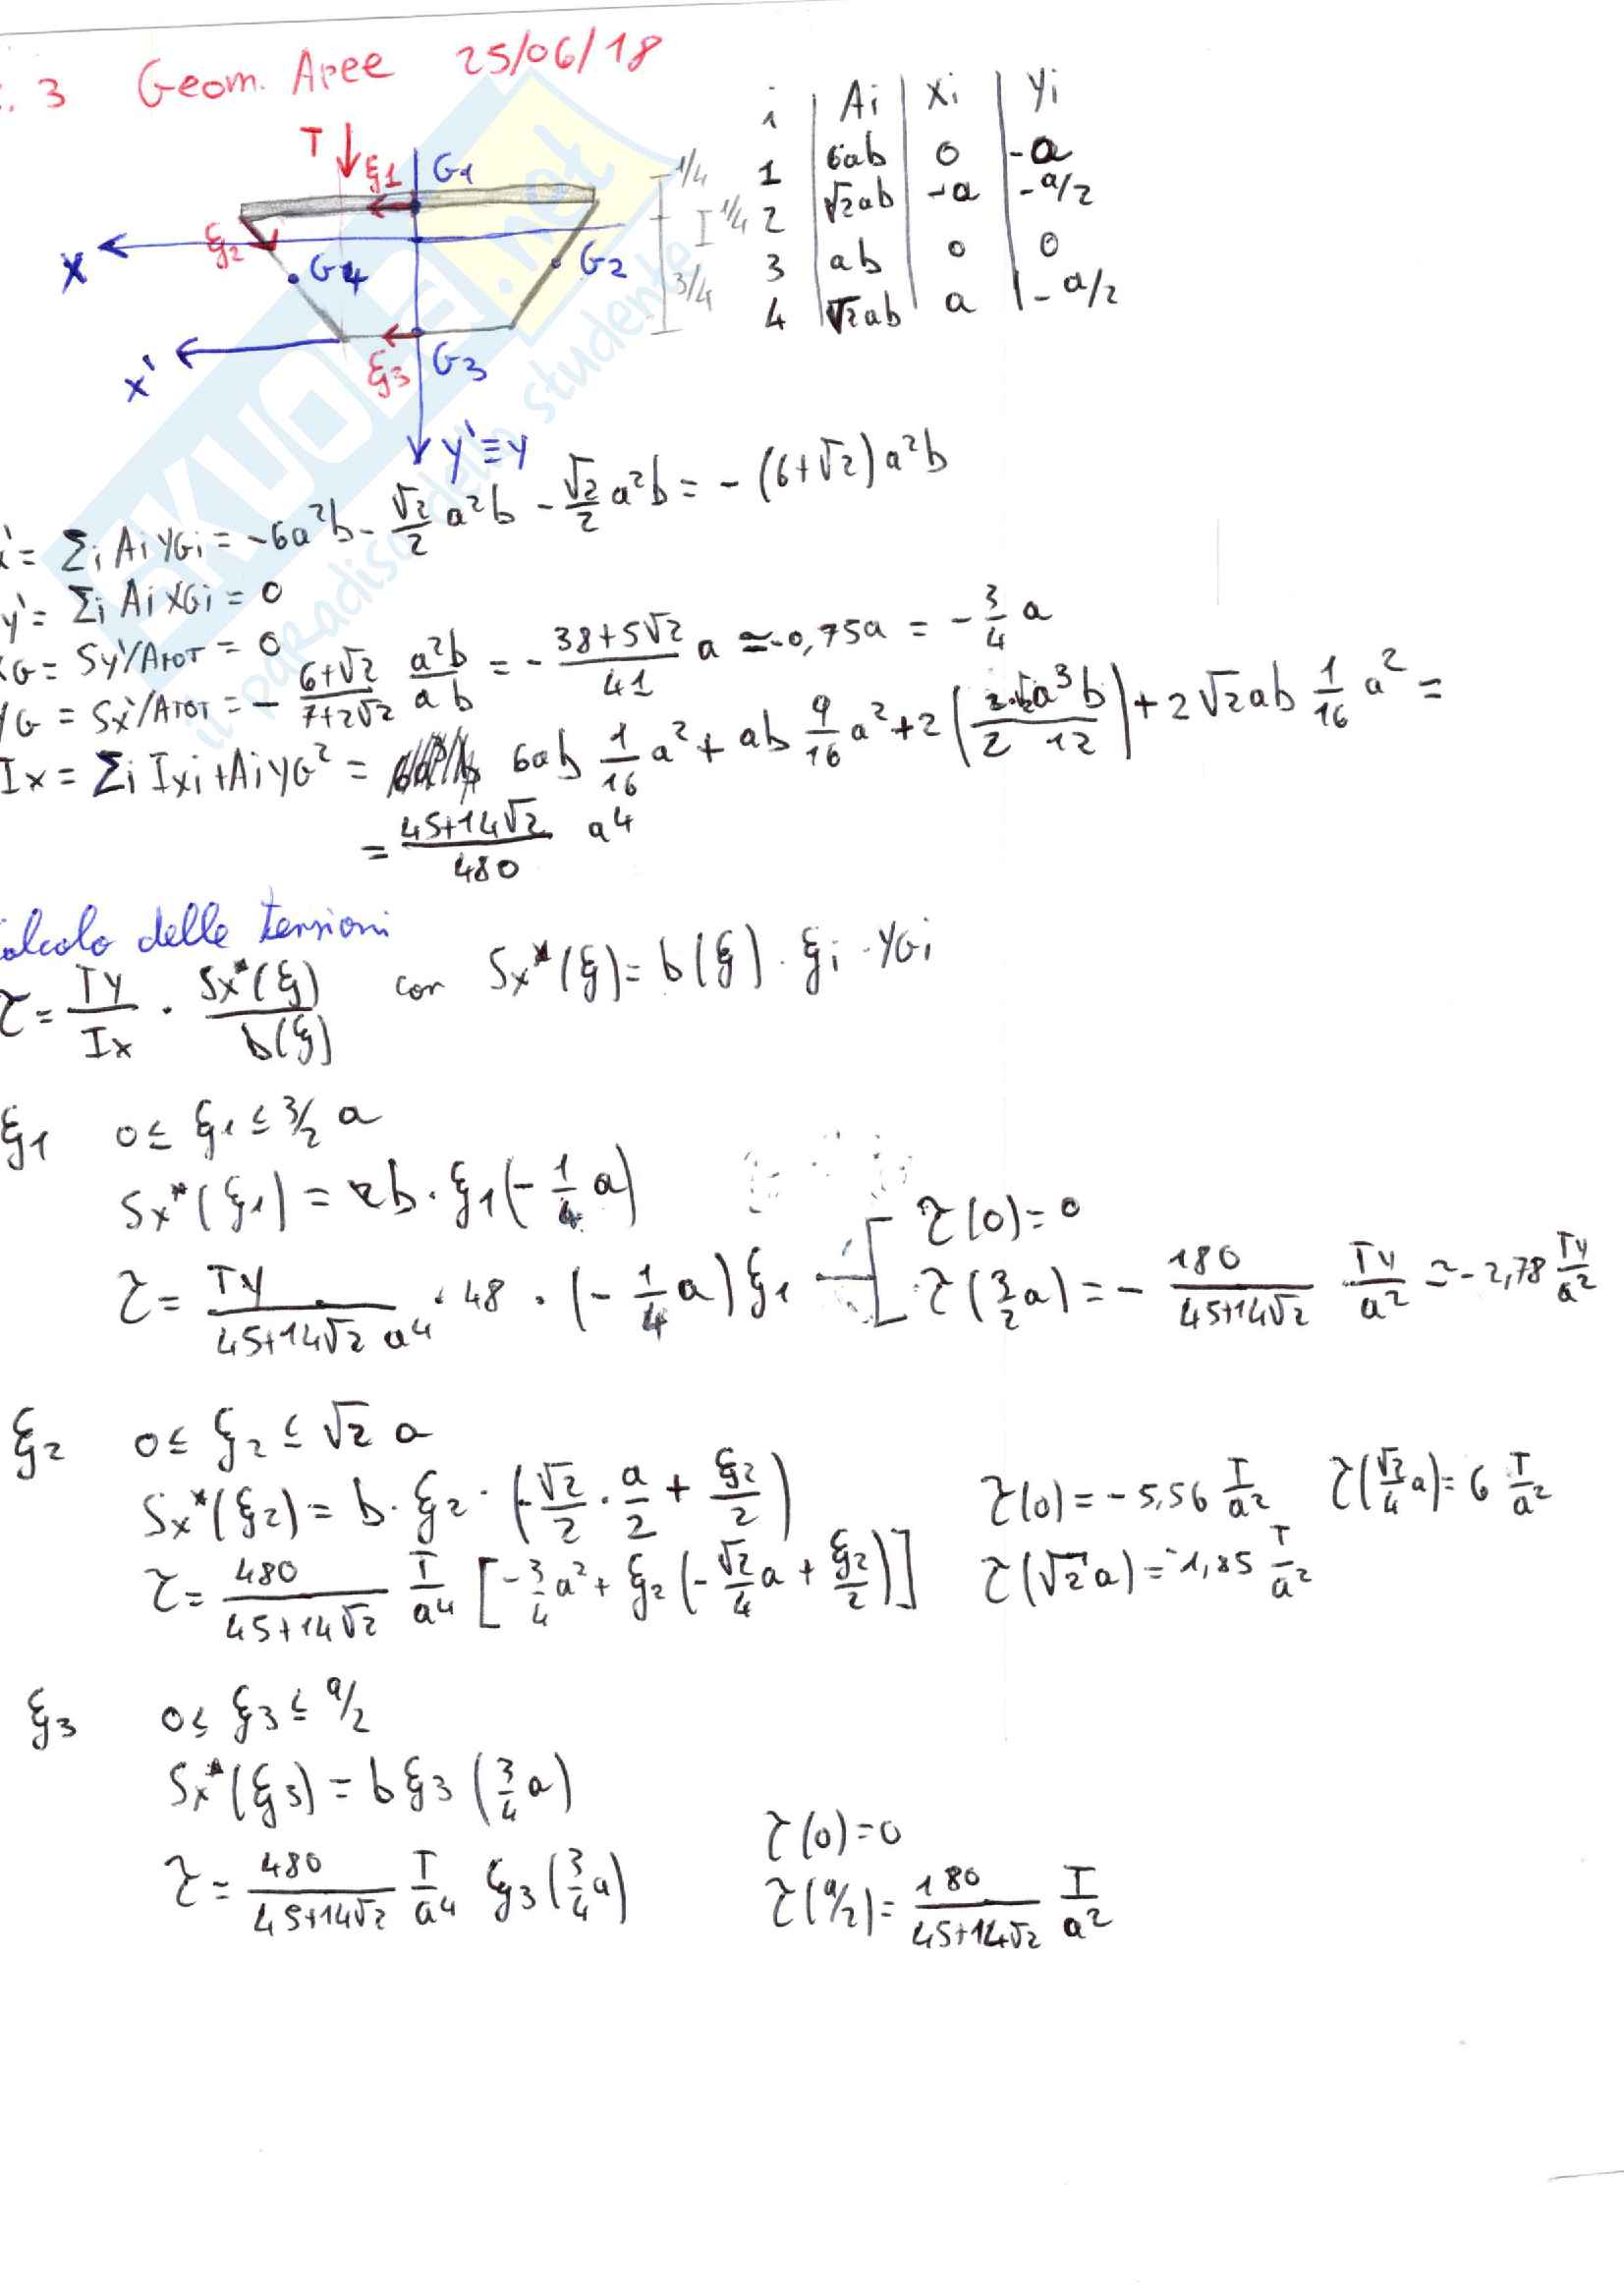 . 3 Geom. Aree 25/06/18
i | Ai | xi | yi
1 | 6ab | 0 | -a
2 | √2ab | -a | -a/2
3 | ab | 0 | 0
4 | √2ab | a | -a/2
T ξ1 G1
ξ2 G4 G2
x
x' ξ3 G3
y'≡y
1/4
1/4
3/4
SKUOLA.net
il paradiso dello studente
x'= Σi Ai yGi = -6a²b - √2/2 a²b - √2/2 a²b = -(6+√2)a²b
y'= Σi Ai xGi = 0
xG = Sy'/ATOT = 0
yG = Sx'/ATOT = - (6+√2)/(7+2√2) a²b/ab = - (38+5√2)/41 a ≃ -0,75a = - 3/4 a
Ix = Σi Ixi + Ai yG² = 6ab 1/16 a² + ab 9/16 a² + 2( a³b / 2 12 ) + 2√2ab 1/16 a² =
= (45+14√2)/480 a⁴
alcolo delle tensioni
τ = Ty/Ix · Sx*(ξ)/b(ξ) con Sx*(ξ) = b(ξ) · ξi · yGi
ξ1 0 ≤ ξ1 ≤ 3/2 a
Sx*(ξ1) = 2b · ξ1 (- 1/4 a)
τ = Ty/(45+14√2 a⁴) · 48 · (- 1/4 a) ξ1
τ(0) = 0
τ(3/2 a) = - 180/(45+14√2) Ty/a² ≃ -2,78 Ty/a²
ξ2 0 ≤ ξ2 ≤ √2 a
Sx*(ξ2) = b · ξ2 · (- √2/2 · a/2 + ξ2/2)
τ = 480/(45+14√2) T/a⁴ [- 3/4 a² + ξ2 (- √2/4 a + ξ2/2)]
τ(0) = -5,56 T/a² τ(√2/4 a) = 6 T/a²
τ(√2 a) = -1,85 T/a²
ξ3 0 ≤ ξ3 ≤ a/2
Sx*(ξ3) = b ξ3 (3/4 a)
τ = 480/(45+14√2) T/a⁴ ξ3 (3/4 a)
τ(0) = 0
τ(a/2) = 180/(45+14√2) T/a²